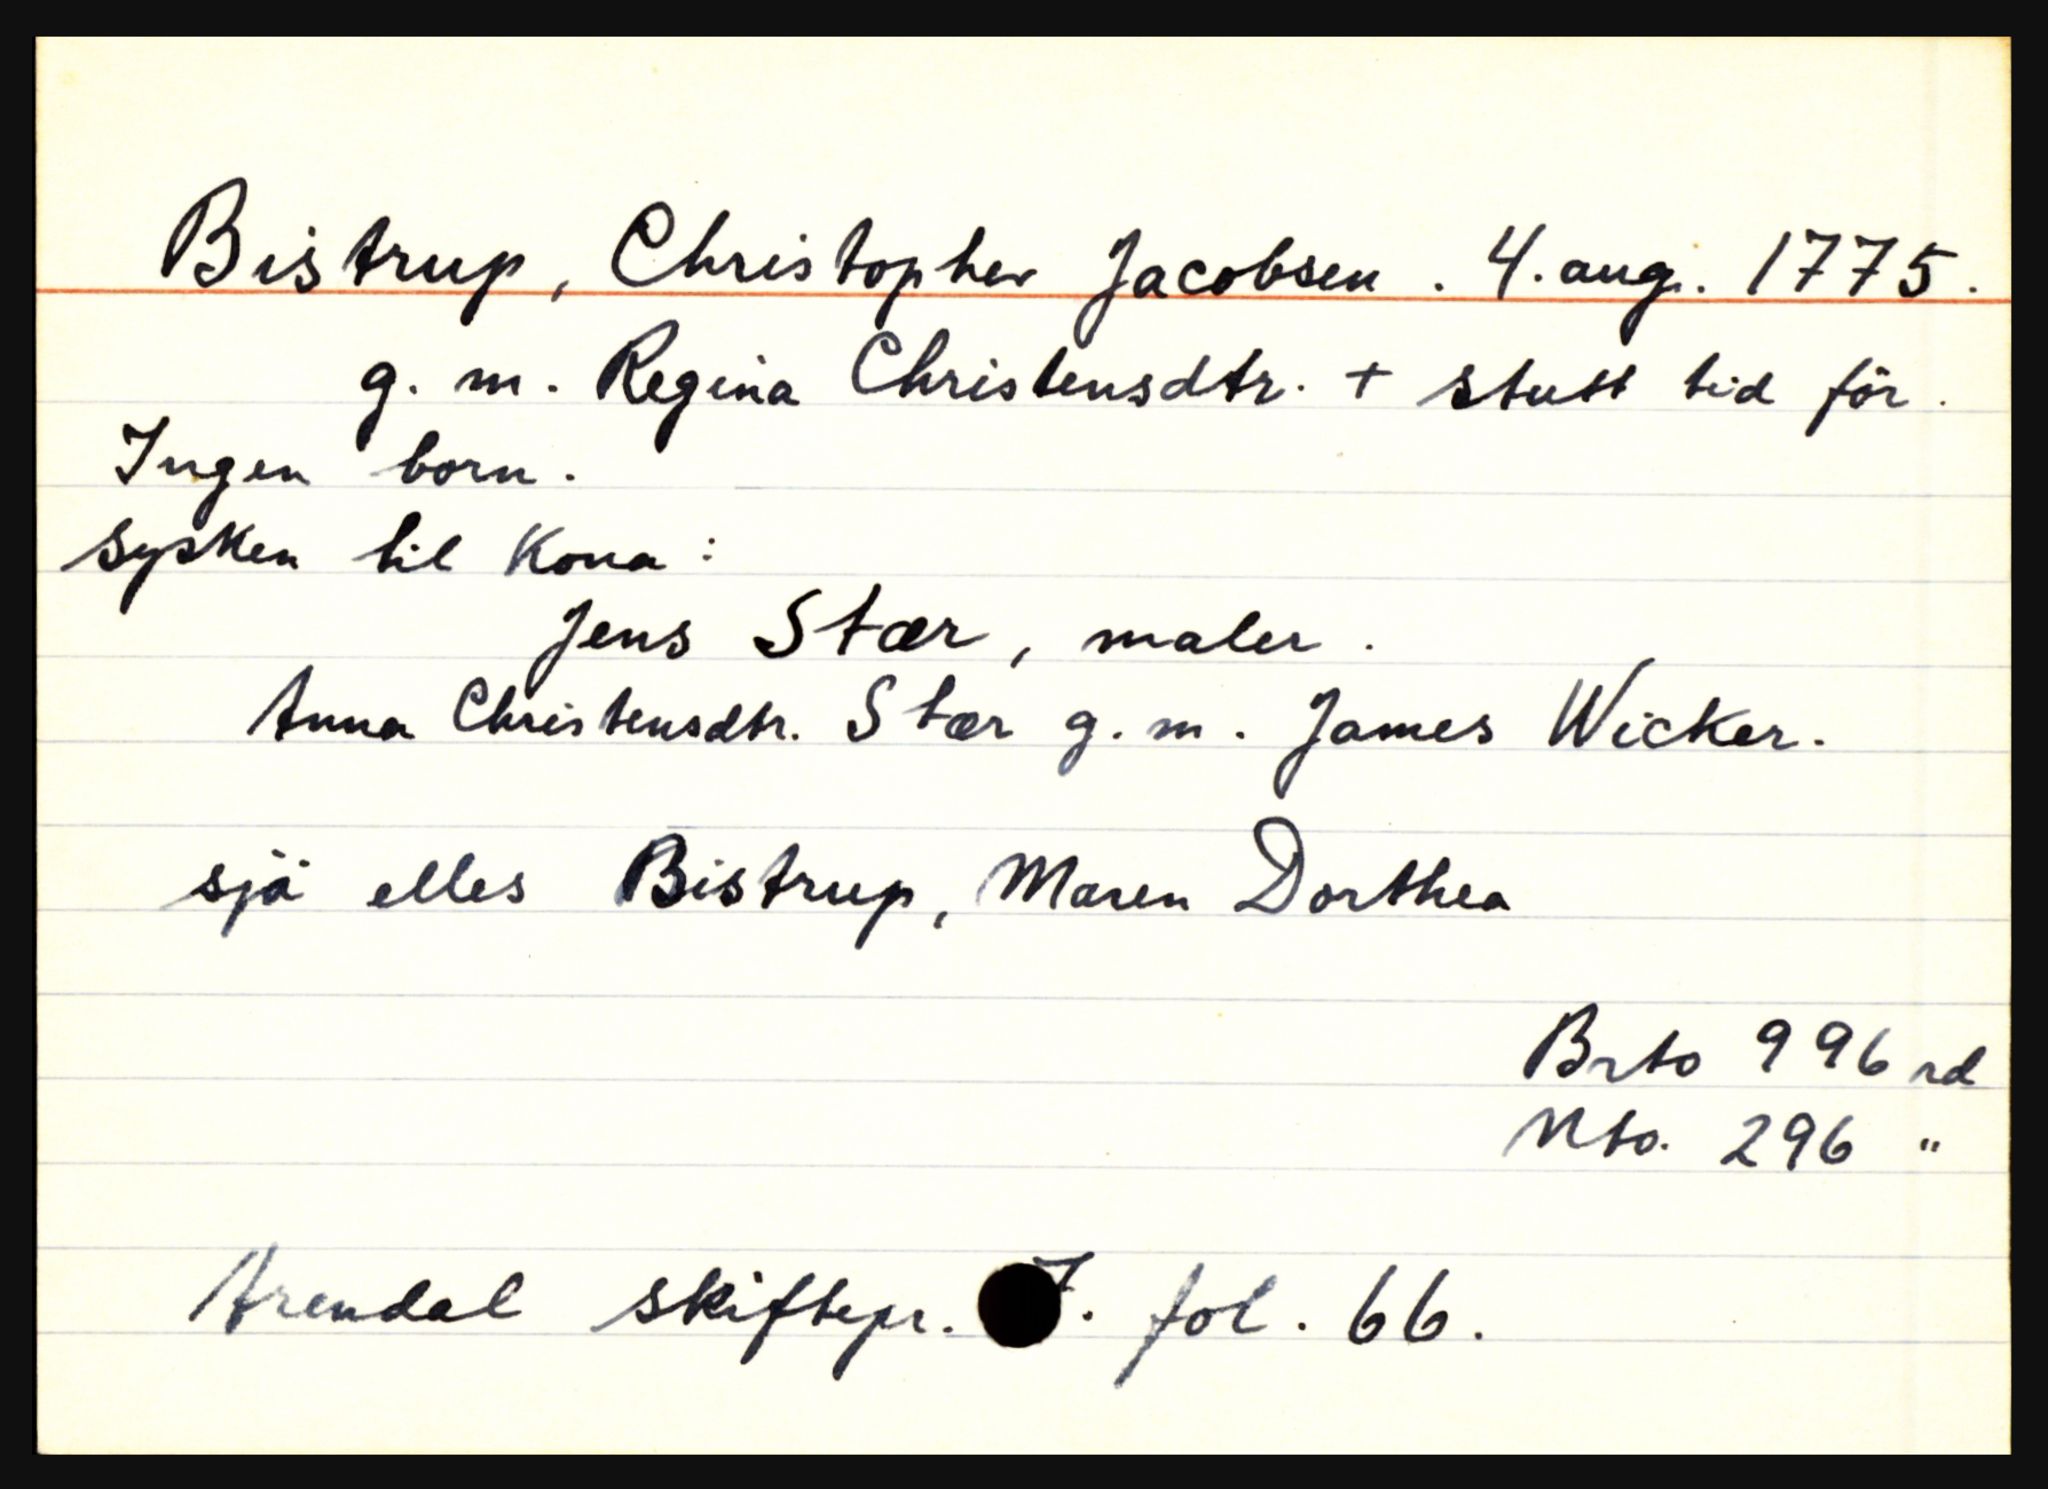 Bistrup, Christopher Jacobsen. 4. aug. 1775.
g. m. Regina Christensdtr. + stutt tidför.
Ingen born.
sysken til Kona:
Jens Stær, maler.
Anna Christensdtr. Stær g. m. James Wicker.
sjå elles Bistrup, Maren Dorthea
Brto 996 rd
Nto. 296 "
Arendal skiftepr. 7. fol. 66.